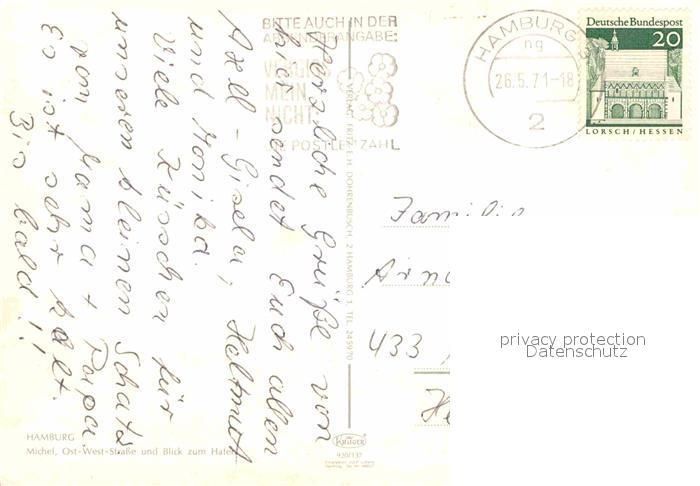 Herzliche Grüße von
hier sendet Euch allen
Axel – Gisela, Helmut
und Monika.
Viele Küsschen für
unseren kleinen Schatz
von Mama + Papa.
Es ist sehr kalt.
Bis bald!!
BITTE AUCH IN DER
ABSENDERANGABE:
VERGISS
MEIN
NICHT:
DIE POSTLEITZAHL
HAMBURG
ng
26.5.71-18
2
Deutsche Bundespost
20
LORSCH/HESSEN
2 HAMBURG 1, TEL. 245970
Familie
Arno
433
He
privacy protection
Datenschutz
HAMBURG
Michel, Ost-West-Straße und Blick zum Hafen
Krüger
920/137